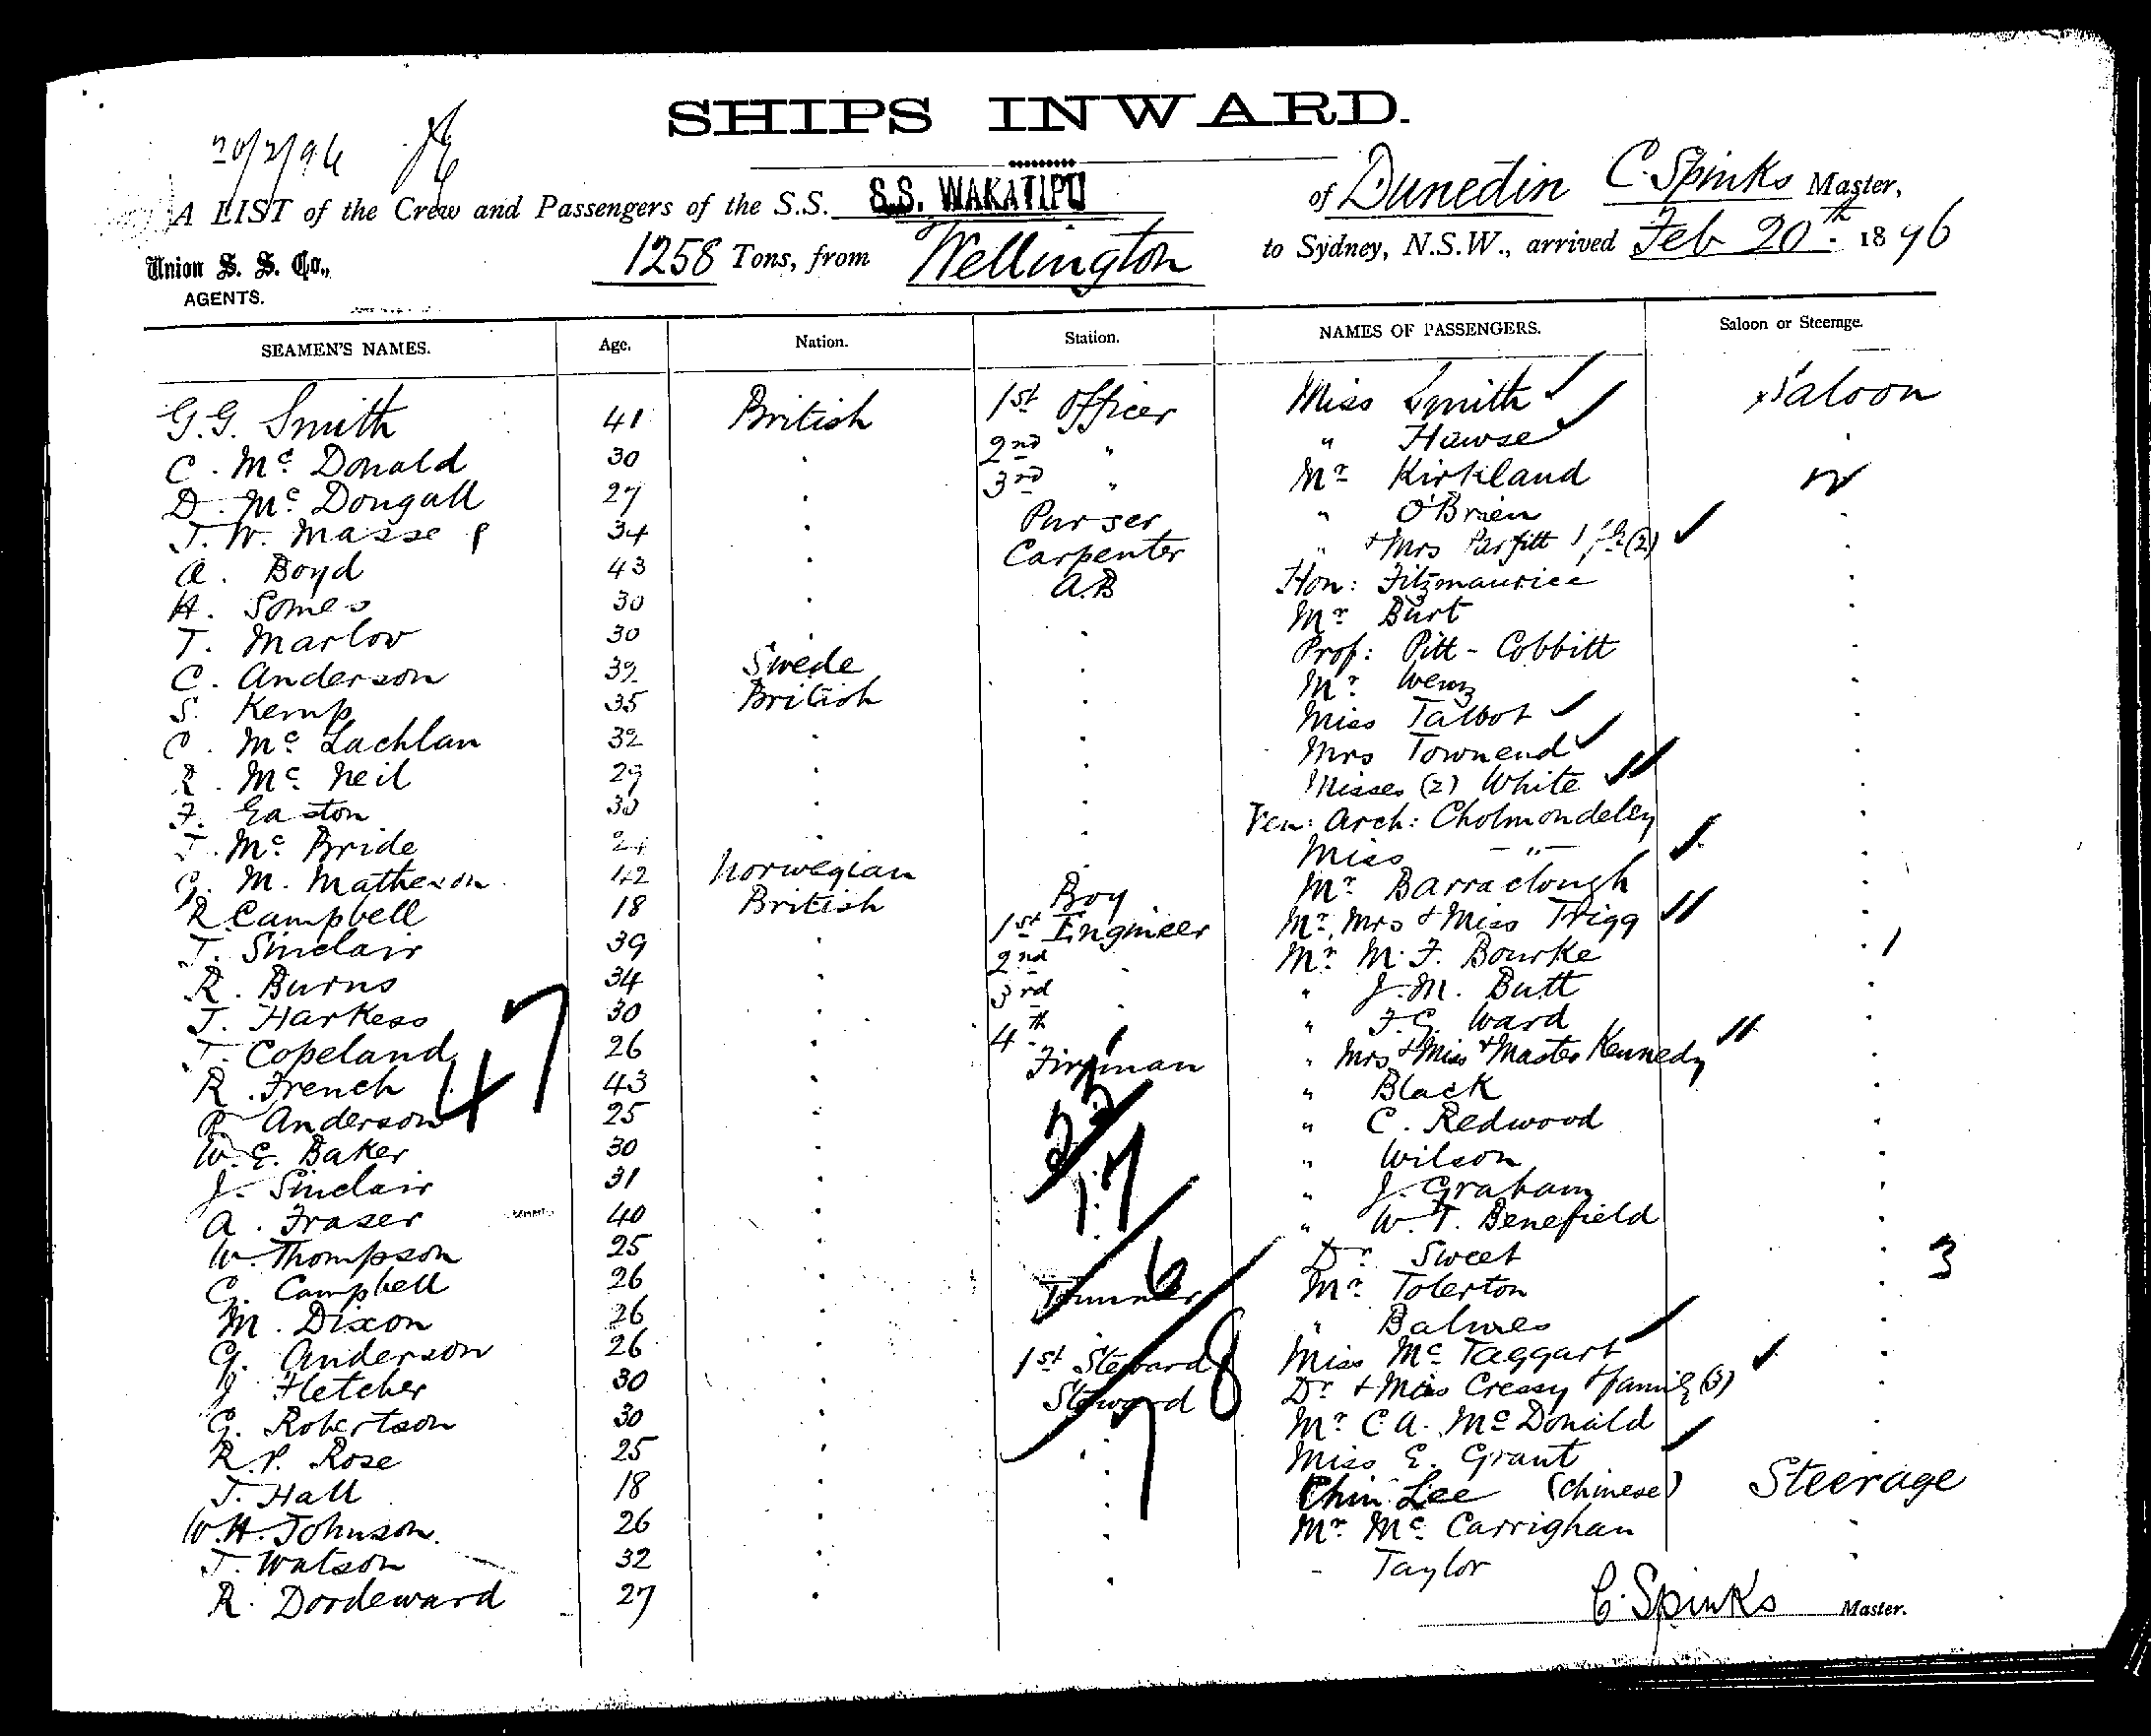 SHIPS INWARD.
20/2/96
A LIST of the Crew and Passengers of the S.S. S.S. WAKATIPU of Dunedin C. Spinks Master,
Union S. S. Co., 1258 Tons, from Wellington to Sydney, N.S.W., arrived Feb 20th. 1896
AGENTS.
SEAMEN'S NAMES. Age. Nation. Station. NAMES OF PASSENGERS. Saloon or Steerage.
G.G. Smith 41 British 1st Officer Miss Smith ✓ Saloon
C. Mc Donald 30 . 2nd " " Hawse ✓ .
D. Mc Dougall 27 . 3rd " Mr Kirkland
J. W. Masse 34 . Purser " O'Brien .
A. Boyd 43 . Carpenter " + Mrs Parfitt (2) ✓ .
H. Somes 30 . A.B Hon: Fitzmaurice .
T. Marlow 30 . . Mr Burt .
C. Anderson 32 Swede . Prof: Pitt - Cobbitt .
S. Kemp 35 British . Mr Wenz .
C. Mc Lachlan 32 . . Miss Talbot ✓ .
R. Mc Neil 29 . . Mrs Townend ✓ .
F. Easton 30 . . Misses (2) White ✓✓ .
J. Mc Bride . . Ven: Arch: Cholmondeley .
G. M. Matheson 42 Norwegian Miss - " - ✓ .
R Campbell 18 British Boy Mr Barraclough .
J. Sinclair 39 . 1st Engineer Mr, Mrs + Miss Trigg ✓✓ .
R. Burns 34 . 2nd . Mr M. F. Bourke . 1
J. Harkess 30 . 3rd . " J. M. Butt .
J. Copeland 26 . 4th . " F. G. Ward .
R. French 43 . Fireman " Mrs + Miss + Master Kennedy .
Anderson 25 . " Black .
W. E. Baker 30 . " C. Redwood .
J. Sinclair 31 . " Wilson .
A. Fraser 40 . " J. Graham .
W. Thompson 25 . " W. T. Benefield .
G. Campbell 26 . Dr Sweet . 3
M. Dixon 26 . Trimmer Mr Tolerton .
G. Anderson 26 . . " .
J Fletcher 30 . 1st Steward Miss Mc Taggart ✓ .
G. Robertson 30 . Steward Dr + Miss Cressy + family (3) ✓ .
R. P. Rose 25 . . Mr C A. Mc Donald .
J. Hall 18 . . Miss E. Grant ✓ .
W. H. Johnson. 26 . . Chin Lee (Chinese) Steerage
J. Watson 32 . . Mr Mc Carrighan .
R. Dordeward 27 . . - Taylor .
47
23
17
6
8
7
C. Spinks Master.